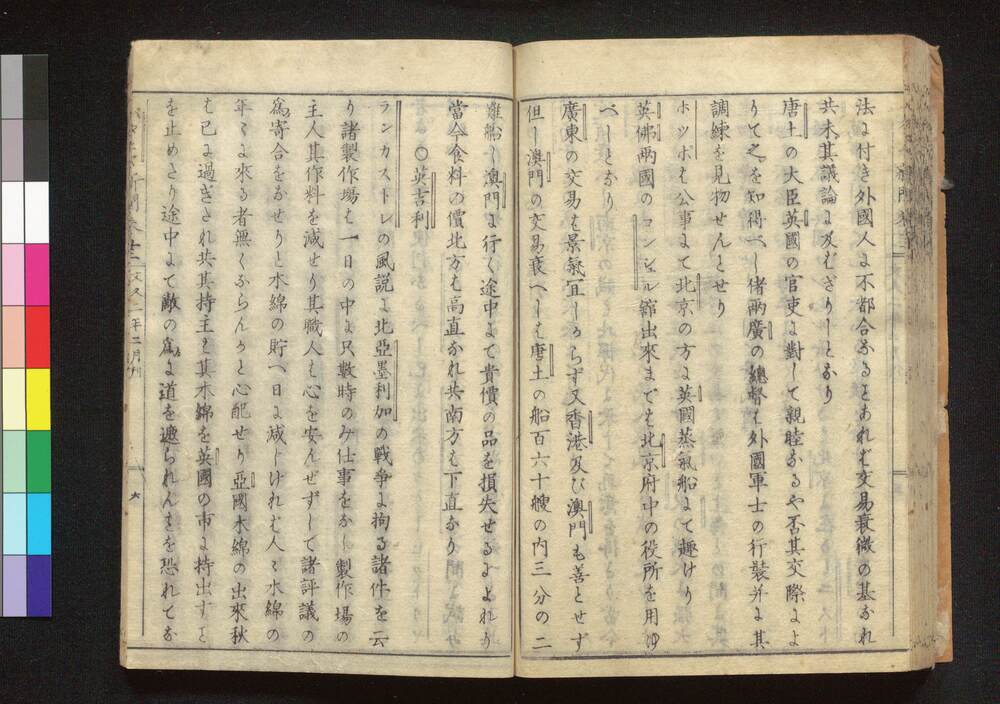 法に付き外國人に不都合なるとあれば交易衰微の基なれ
共未其議論に及ばざりしとなり
唐土の大臣英國の官吏に對して親睦なるや否其交際によ
りて之を知得べし偖兩廣の總督も外國軍士の行裝并に其
調練を見物せんとせり
ホツポも公事にて北京の方に英國蒸氣船にて趣けり
英佛兩國のコンシュル舘出來までは北京府中の役所を用ゆ
べしとなり
廣東の交易も景氣宜しからず又香港及び澳門も善とせず
但し澳門の交易衰へしは唐土の船百六十艘の内三分の二
難船し澳門に行く途中にて貴價の品を損失せるによれり
當今食料の價北方は高直なれ共南方は下直なり
○英吉利
ランカストレの風説に北亞墨利加の戰爭に拘る諸件を云
り諸製作場も一日の中に只數時のみ仕事をなし製作場の
主人其作料を減せり其職人も心を安んせずして諸評議の
爲寄合をなせりと木綿の貯へ日に減じければ人々木綿の
年々に來る者無くならんかと心配せり亞國木綿の出來秋
は已に過ぎされ共其持主は其木綿を英國の市に持出すと
を止めたり途中にて敵の爲に道を遮られんとを恐れてな
新聞 卷十二 文久二年二月刊 六